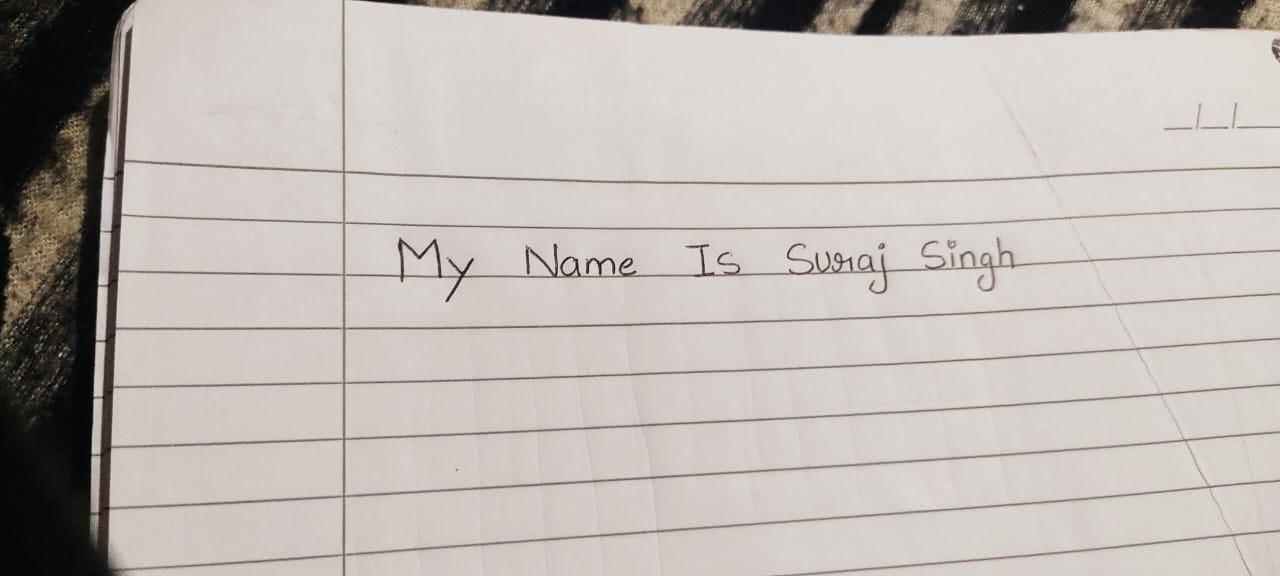 My Name Is Suraj Singh